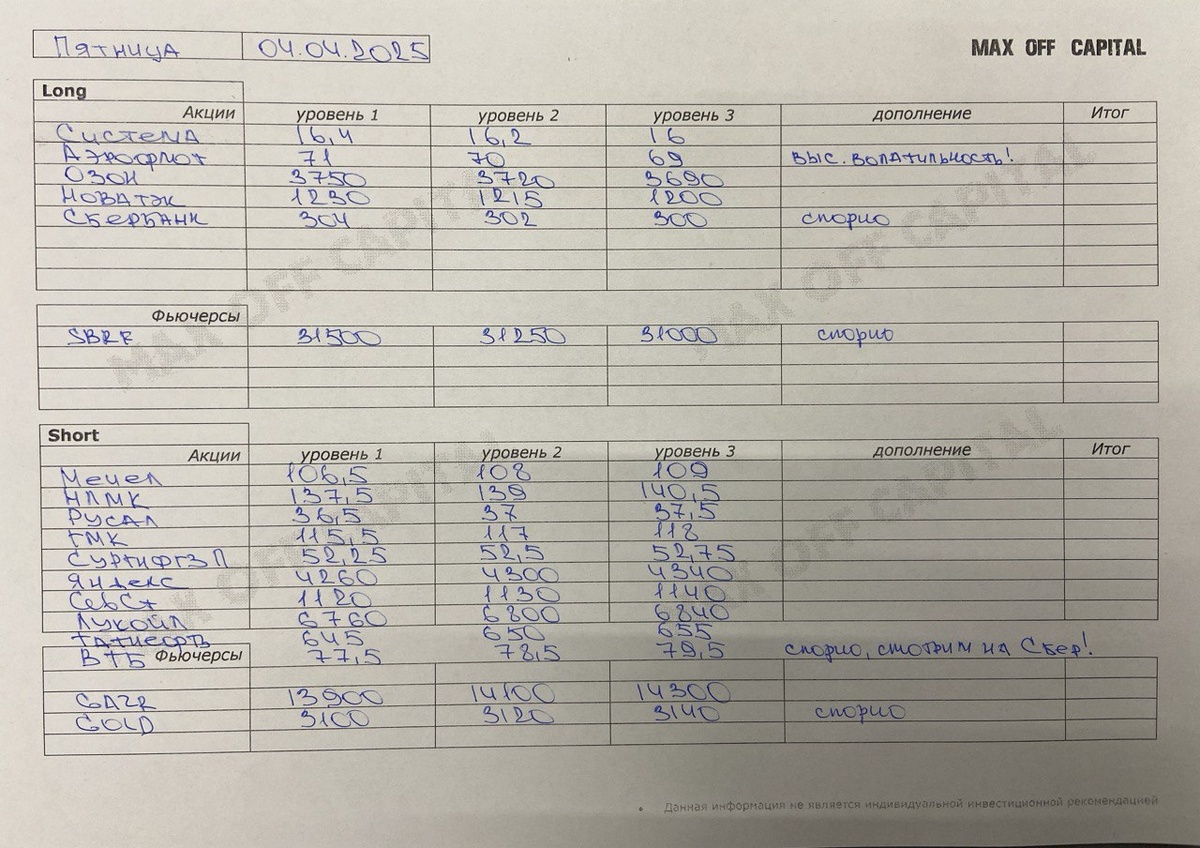 Пятница 04.04.2025 MAX OFF CAPITAL
Long
Акции уровень 1 уровень 2 уровень 3 дополнение Итог
Система 16,4 16,2 16
Аэрофлот 71 70 69 выс. волатильность!
Озон 3750 3720 3690
Новатэк 1230 1215 1200
Сбербанк 304 302 300 спорно
Фьючерсы
SBRF 31500 31250 31000 спорно
Short
Акции уровень 1 уровень 2 уровень 3 дополнение Итог
Мечел 106,5 108 109
НЛМК 137,5 139 140,5
Русал 36,5 37 37,5
ГМК 115,5 117 118
Сургнфгз П 52,25 52,5 52,75
Яндекс 4260 4300 4340
СевСт 1120 1130 1140
Лукойл 6760 6800 6840
Татнефть 645 650 655
ВТБ Фьючерсы 77,5 78,5 79,5 спорно, смотрим на Сбер!
GAZR 13900 14100 14300
GOLD 3100 3120 3140 спорно
Данная информация не является индивидуальной инвестиционной рекомендацией
MAX OFF CAPITAL
MAX OFF CAPITAL
MAX OFF CAPITAL
MAX OFF CAPITAL